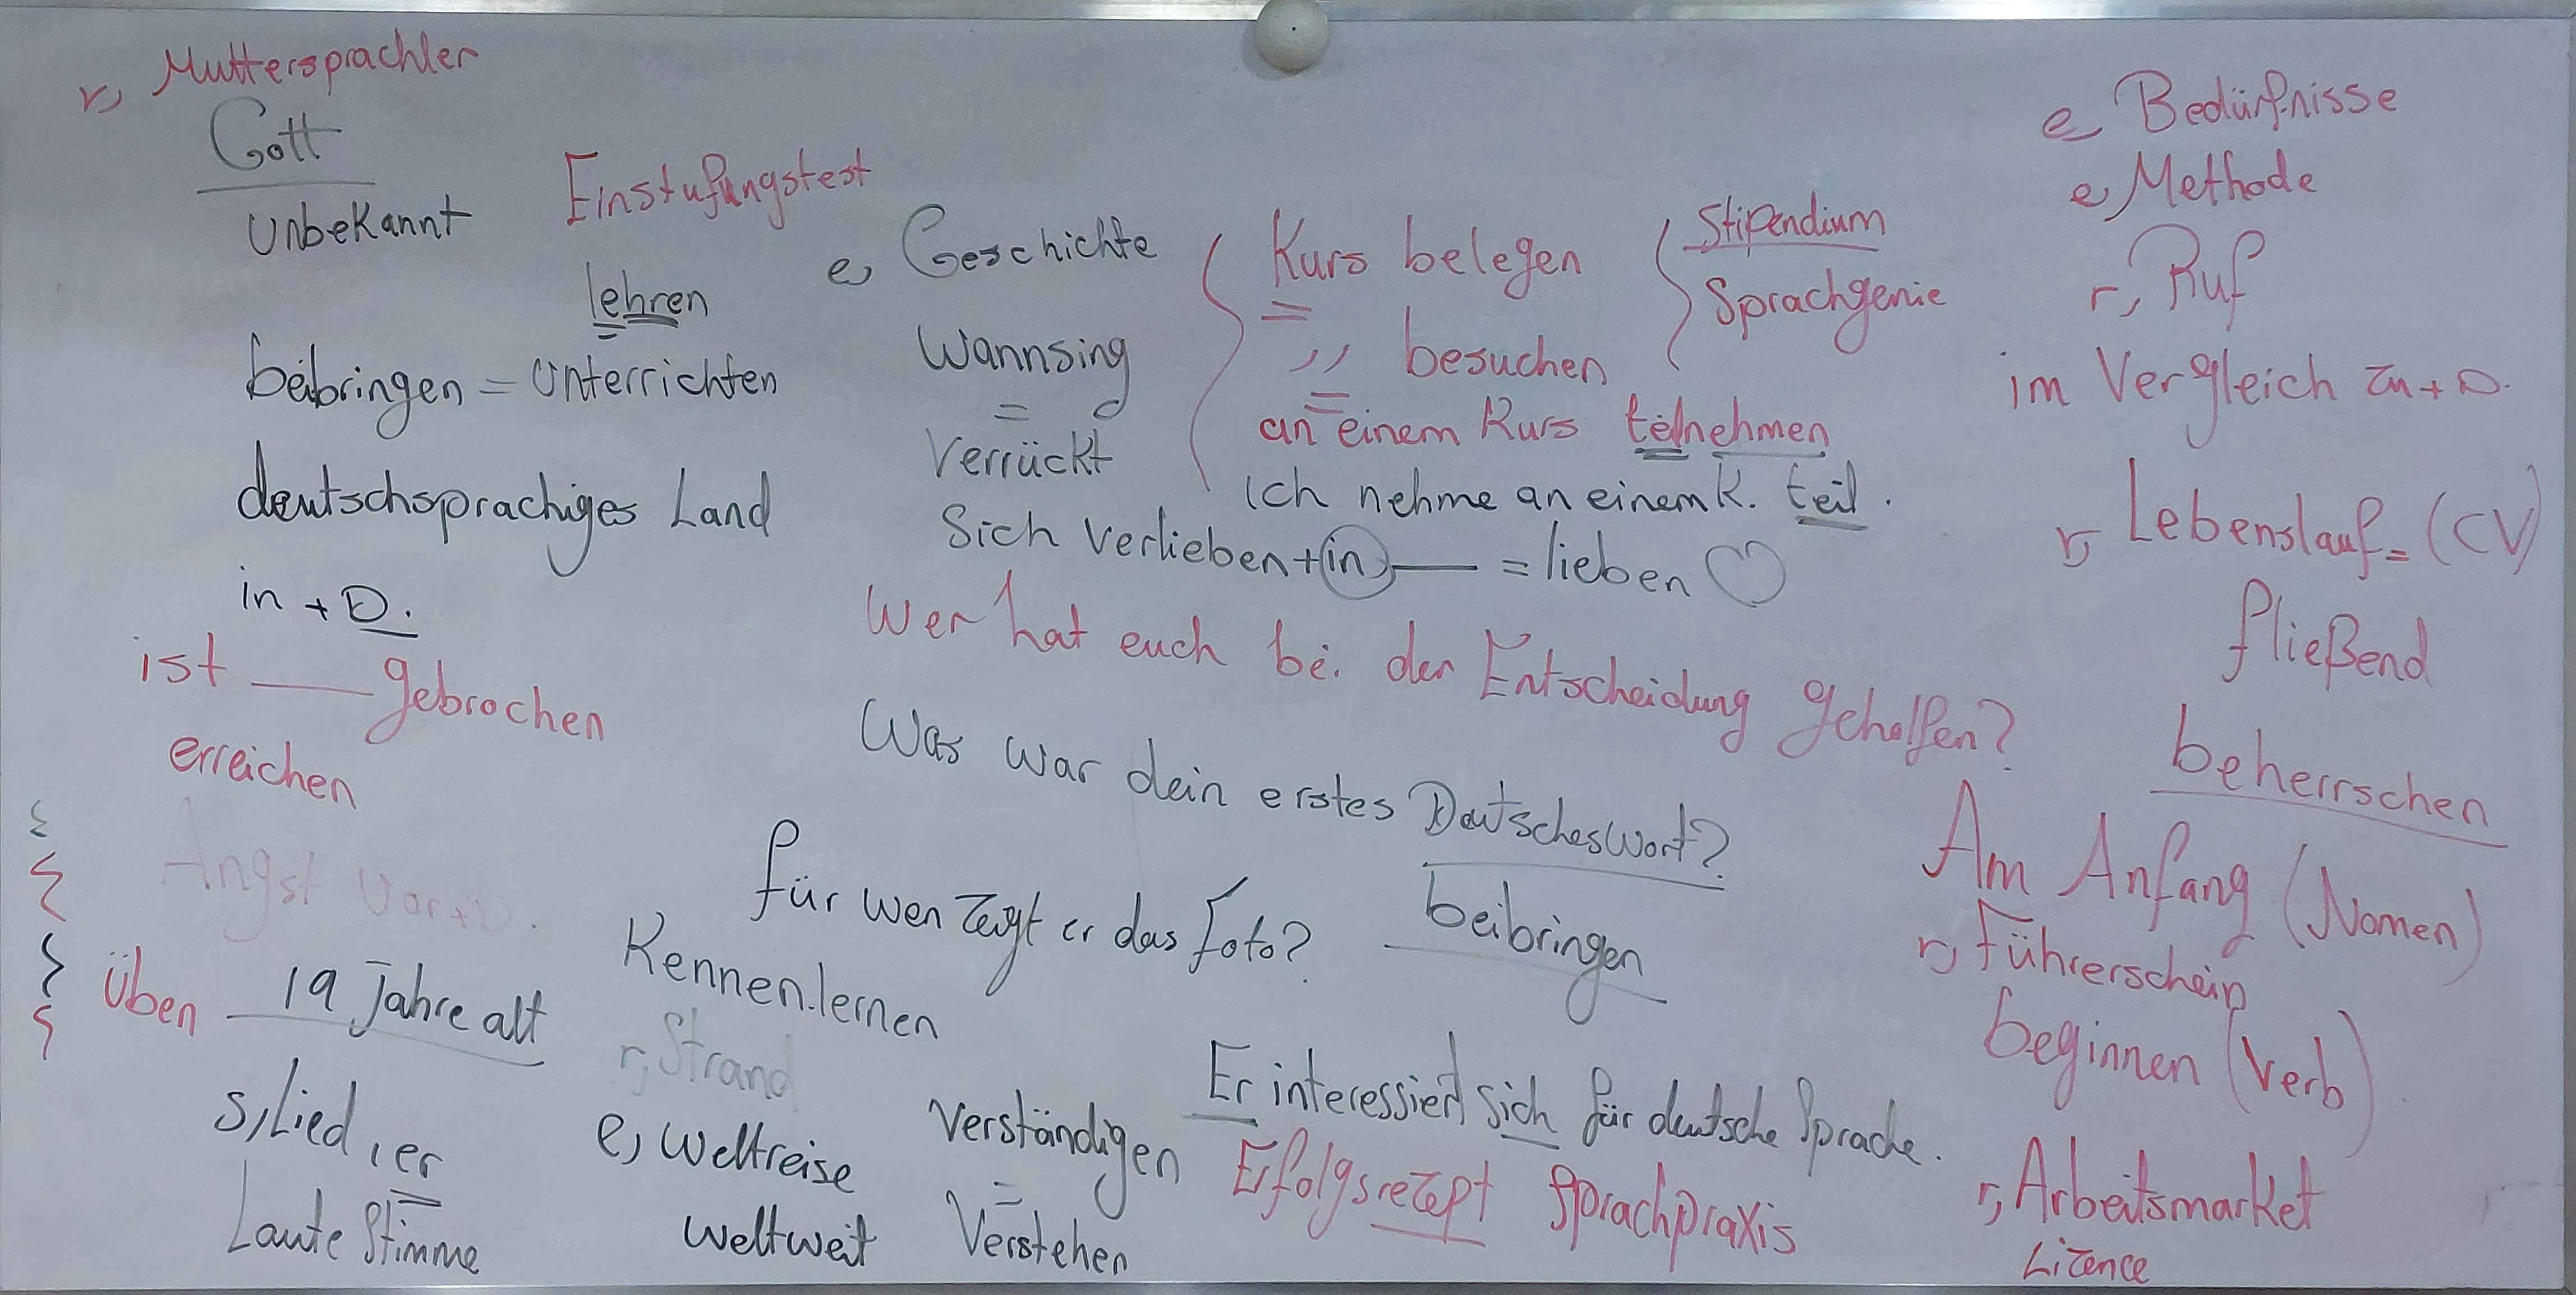 r, Muttersprachler
Gott
Unbekannt
Einstufungstest
lehren
beibringen = Unterrichten
deutschsprachiges Land
in + D.
ist ___ gebrochen
erreichen
Angst Vor + D.
üben
19 Jahre alt
s, Lied, er
Laute Stimme
e, Geschichte
Wannsing
=
Verrückt
Kurs belegen
=
,, besuchen
=
an einem Kurs teilnehmen
ich nehme an einem K. teil.
Stipendium
Sprachgenie
Sich verlieben + in ___ = lieben ♡
Wer hat euch bei der Entscheidung geholfen?
Was war dein erstes Deutsches Wort?
für wen zeigt er das Foto?
beibringen
Kennen.lernen
r, Strand
e, Weltreise
weltweit
Verständigen
=
Verstehen
Er interessiert sich für deutsche Sprache.
Erfolgsrezept Sprachpraxis
e Bedürfnisse
e, Methode
r, Ruf
im Vergleich zu + D.
r, Lebenslauf = (CV)
fließend
beherrschen
Am Anfang (Nomen)
r, Führerschein
beginnen (Verb)
r, Arbeitsmarket
Lizence